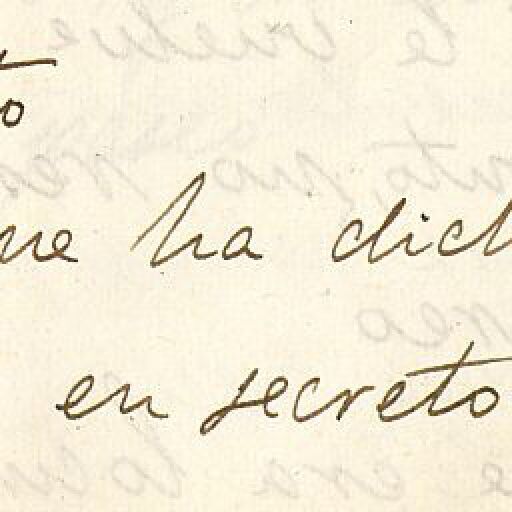 to
ue ha dich
en secreto